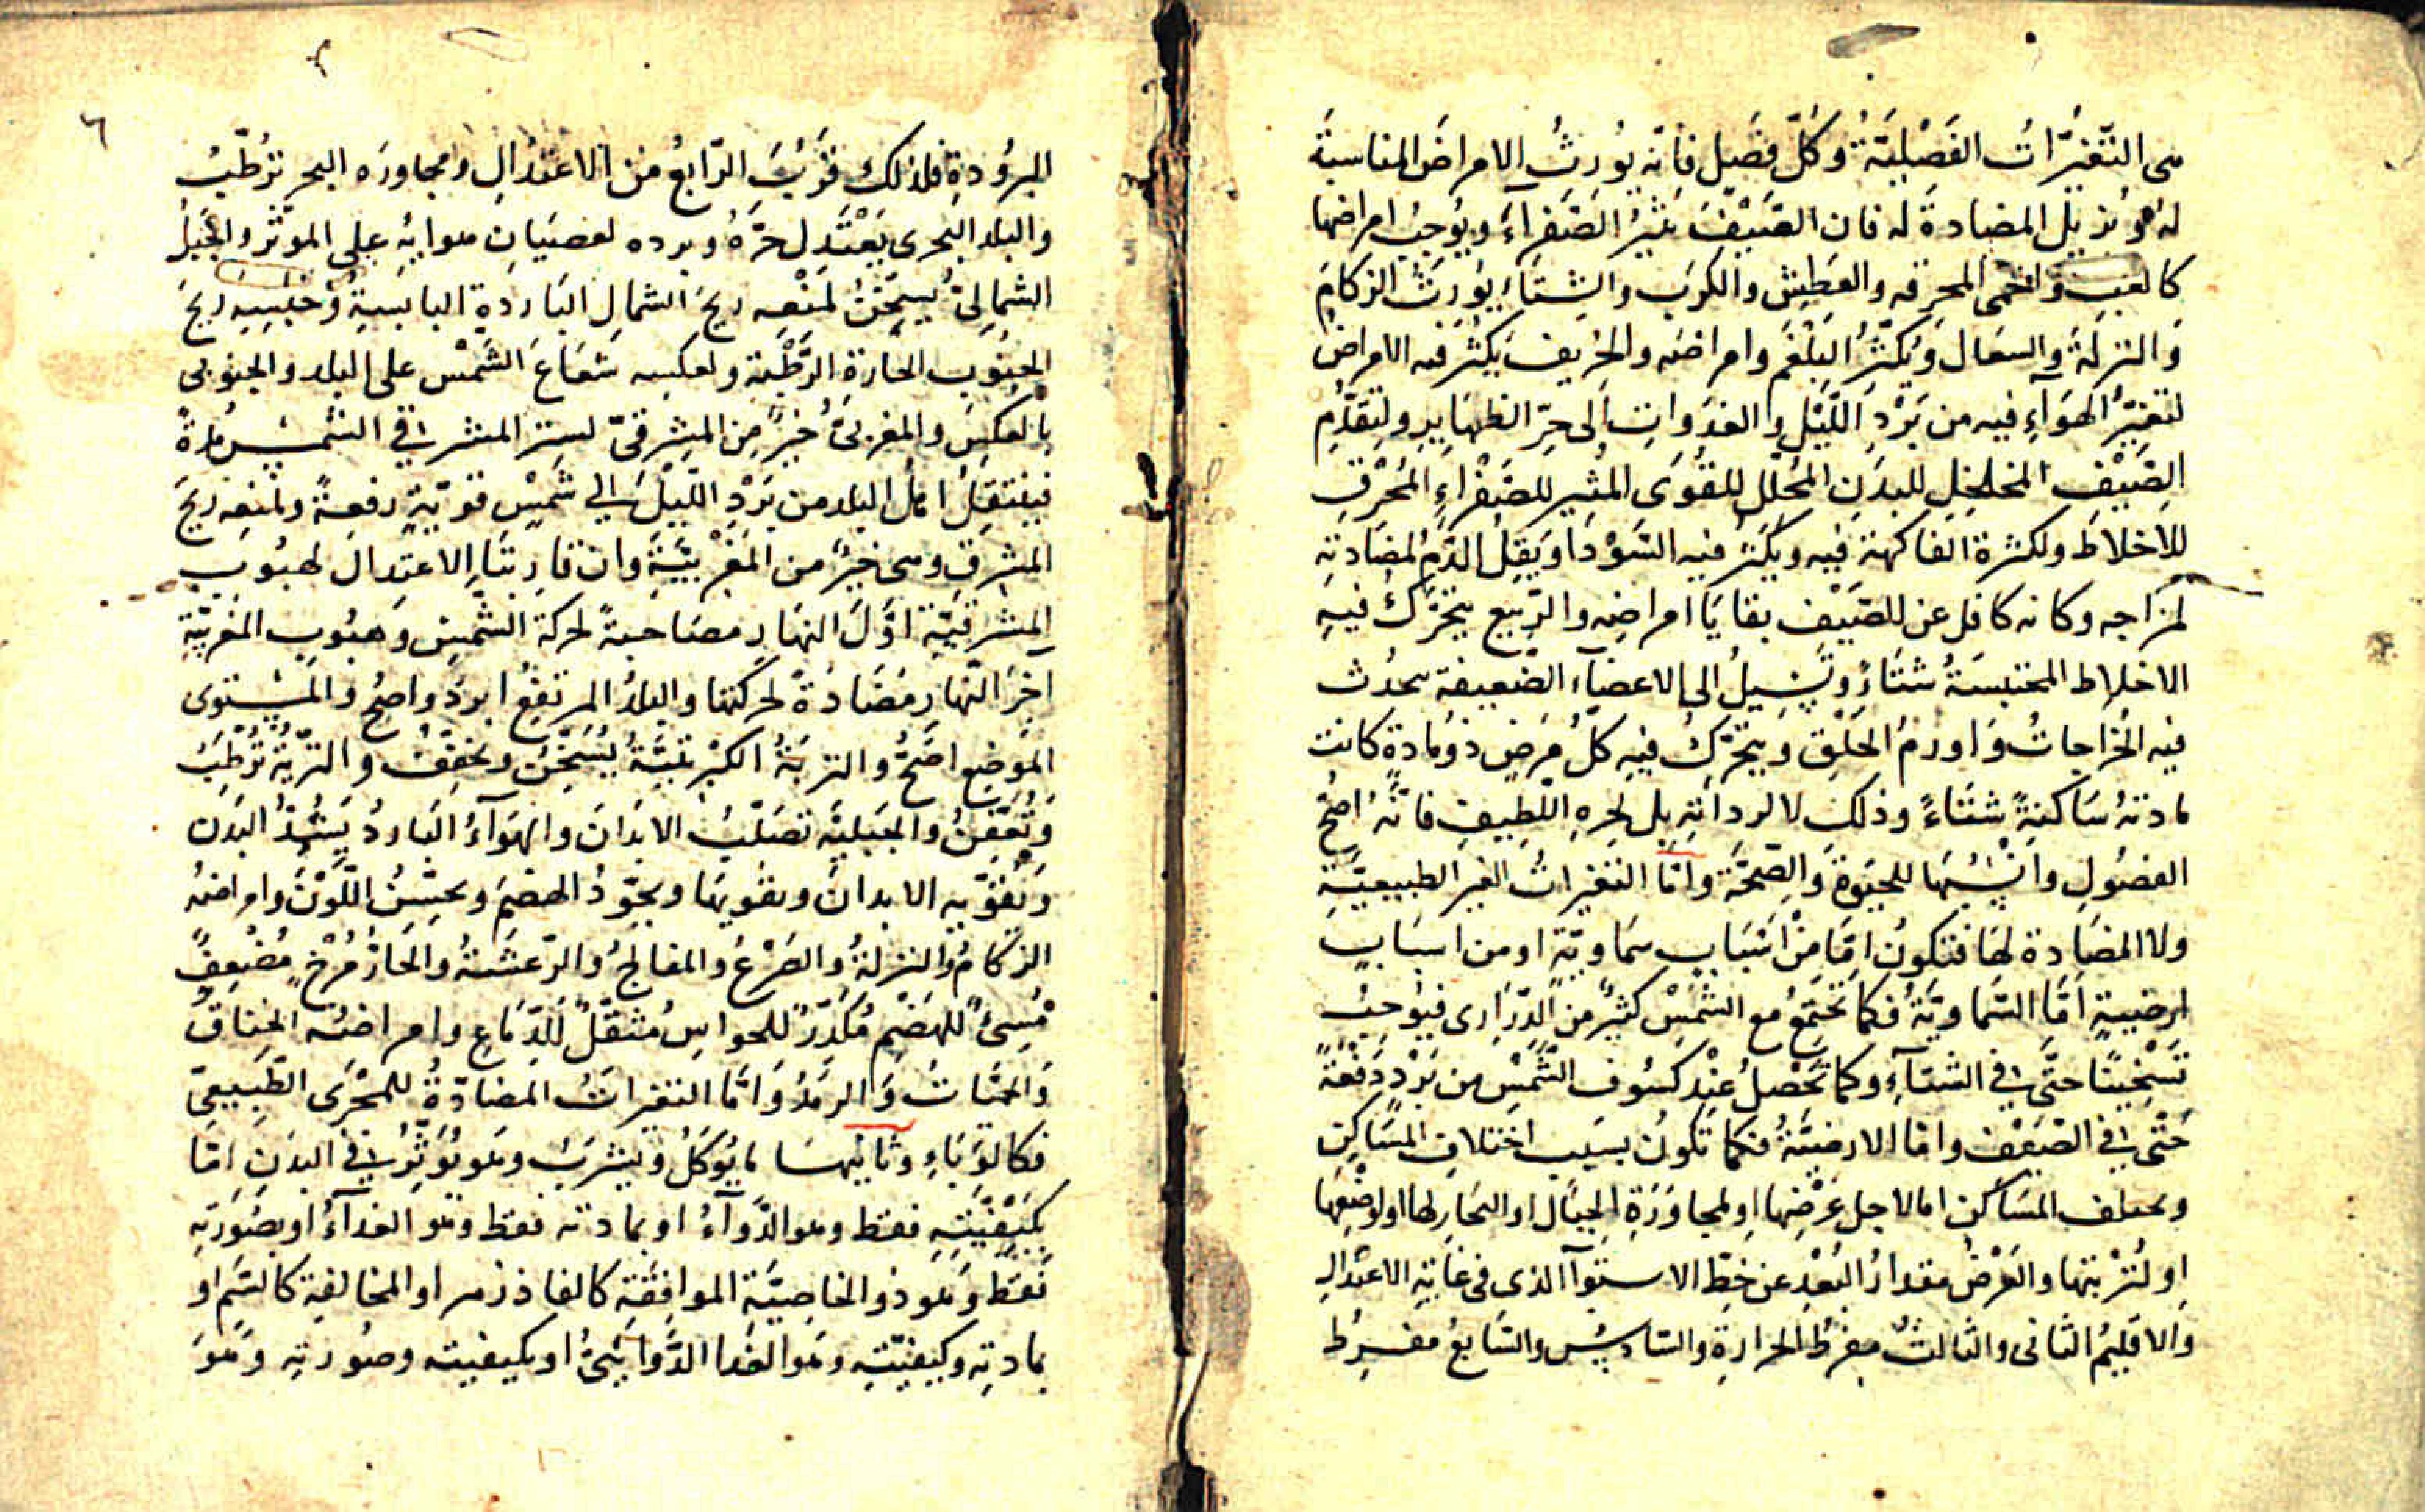 هى التغيرات الفصلية وكل فصل فانه يورث الامراض المناسبة
له ويزيل المضادة له فان الصيف يثير الصفراء ويوجب امراضها
كالغب والحمى المحرقه والعطش والكرب والشتاء يورث الزكام
والنزلة والسعال ويكثر البلغم وامراضه والخريف يكثر فيه الامراض
لتغير الهواء فيه من برد الليل والغدوات الى حر الظهاير ولتقدم
الصيف المخلخل للبدن المحلل للقوى المثير للصفراء المحرق
للاخلاط ولكثرة الفاكهة فيه ويكثر فيه السودا ويقل الدم لمضادته
لمزاجه وكانه كافل عن الصيف بقايا امراضه والربيع يتحرك فيه
الاخلاط المحتبسة شتاء وتسيل الى الاعضاء الضعيفة يحدث
فيه الخراجات واورم الحلق ويتحرك فيه كل مرض ذو مادة كانت
مادته ساكنة شتاء وذلك لا لرداته بل لحره اللطيف فانه اصح
الفصول وانسبها للحيوة والصحة واما التغيرات الغير الطبيعية
ولا المضادة لها فتكون اما من اسباب سماوية او من اسباب
ارضيية اما السماوية فكما تجتمع مع الشمس كثير من الدرارى فيوجب
تسخينا حتى فى الشتاء وكما تحصل عند كسوف الشمس من برد دفعة
حتى فى الصيف واما الارضية فكما تكون بسبب اختلاف المساكن
ويختلف المساكن اما لاجل عرضها او لمجاورة الجبال او البحار لها او لوضعها
او لتربتها والعرض مقدار البعد عن خط الاستواا الذى فى غاية الاعتدال
والاقليم الثانى والثالث مفرط الحرارة والسادس والسابع مفرط
٦
البرودة فلذلك قرب الرابع من الاعتدال ومجاوره البحر ترطب
والبلد البحرى يعتدل حره وبرده لعصيان هوايه على الموثر والجبل
الشمالى يسخن لمنعه ريح الشمال الباردة اليابسة وحبسه ريح
الجنوب الحارة الرطبة ولعكسه شعاع الشمس على البلد والجنوبى
بالعكس والمغربى خير من المشرقى لستر المشرقى الشمس مدة
فينتقل اهل البلد من برد الليل الى شمس قوية دفعة ولمنعه ريح
المشرق وهى خير من المغربية وان قاربتا الاعتدال لهبوب
المشرقية اول النهار مصاحبة لحركة الشمس وهبوب المغربية
اخر النهار مضادة لحركتها والبلد المرتفع ابرد واصح والمستوى
الموضع اصح والتربة الكبريتية يسخن وتجفف والنزية ترطب
وتعفن والجبلية تصلب الابدان والهواء البارد يشد البدن
ويقويه الابدان ويقويها ويجود الهضم ويحسن اللون وامراضه
الزكام والنزلة والصرع والفالج والرعشة والحار مرخ مضعف
مسئ للهضم مكدر للحواس مثقل للدماغ وامراضه الخناق
والحميات والرمد واما التغيرات المضادة للمجرى الطبيعى
فكالوباء وثانيها ما يوكل ويشرب وهو يوثر فى البدن اما
بكيفيته فقط وهو الدواء او بمادته فقط وهو الغداء او بصورته
فقط وهو ذو الخاصية الموافقة كالفاذزهر او المخالفة كالسم او
بمادته وكيفيته وهو الغدا الدوائى او بكيفيته وصورته وهو